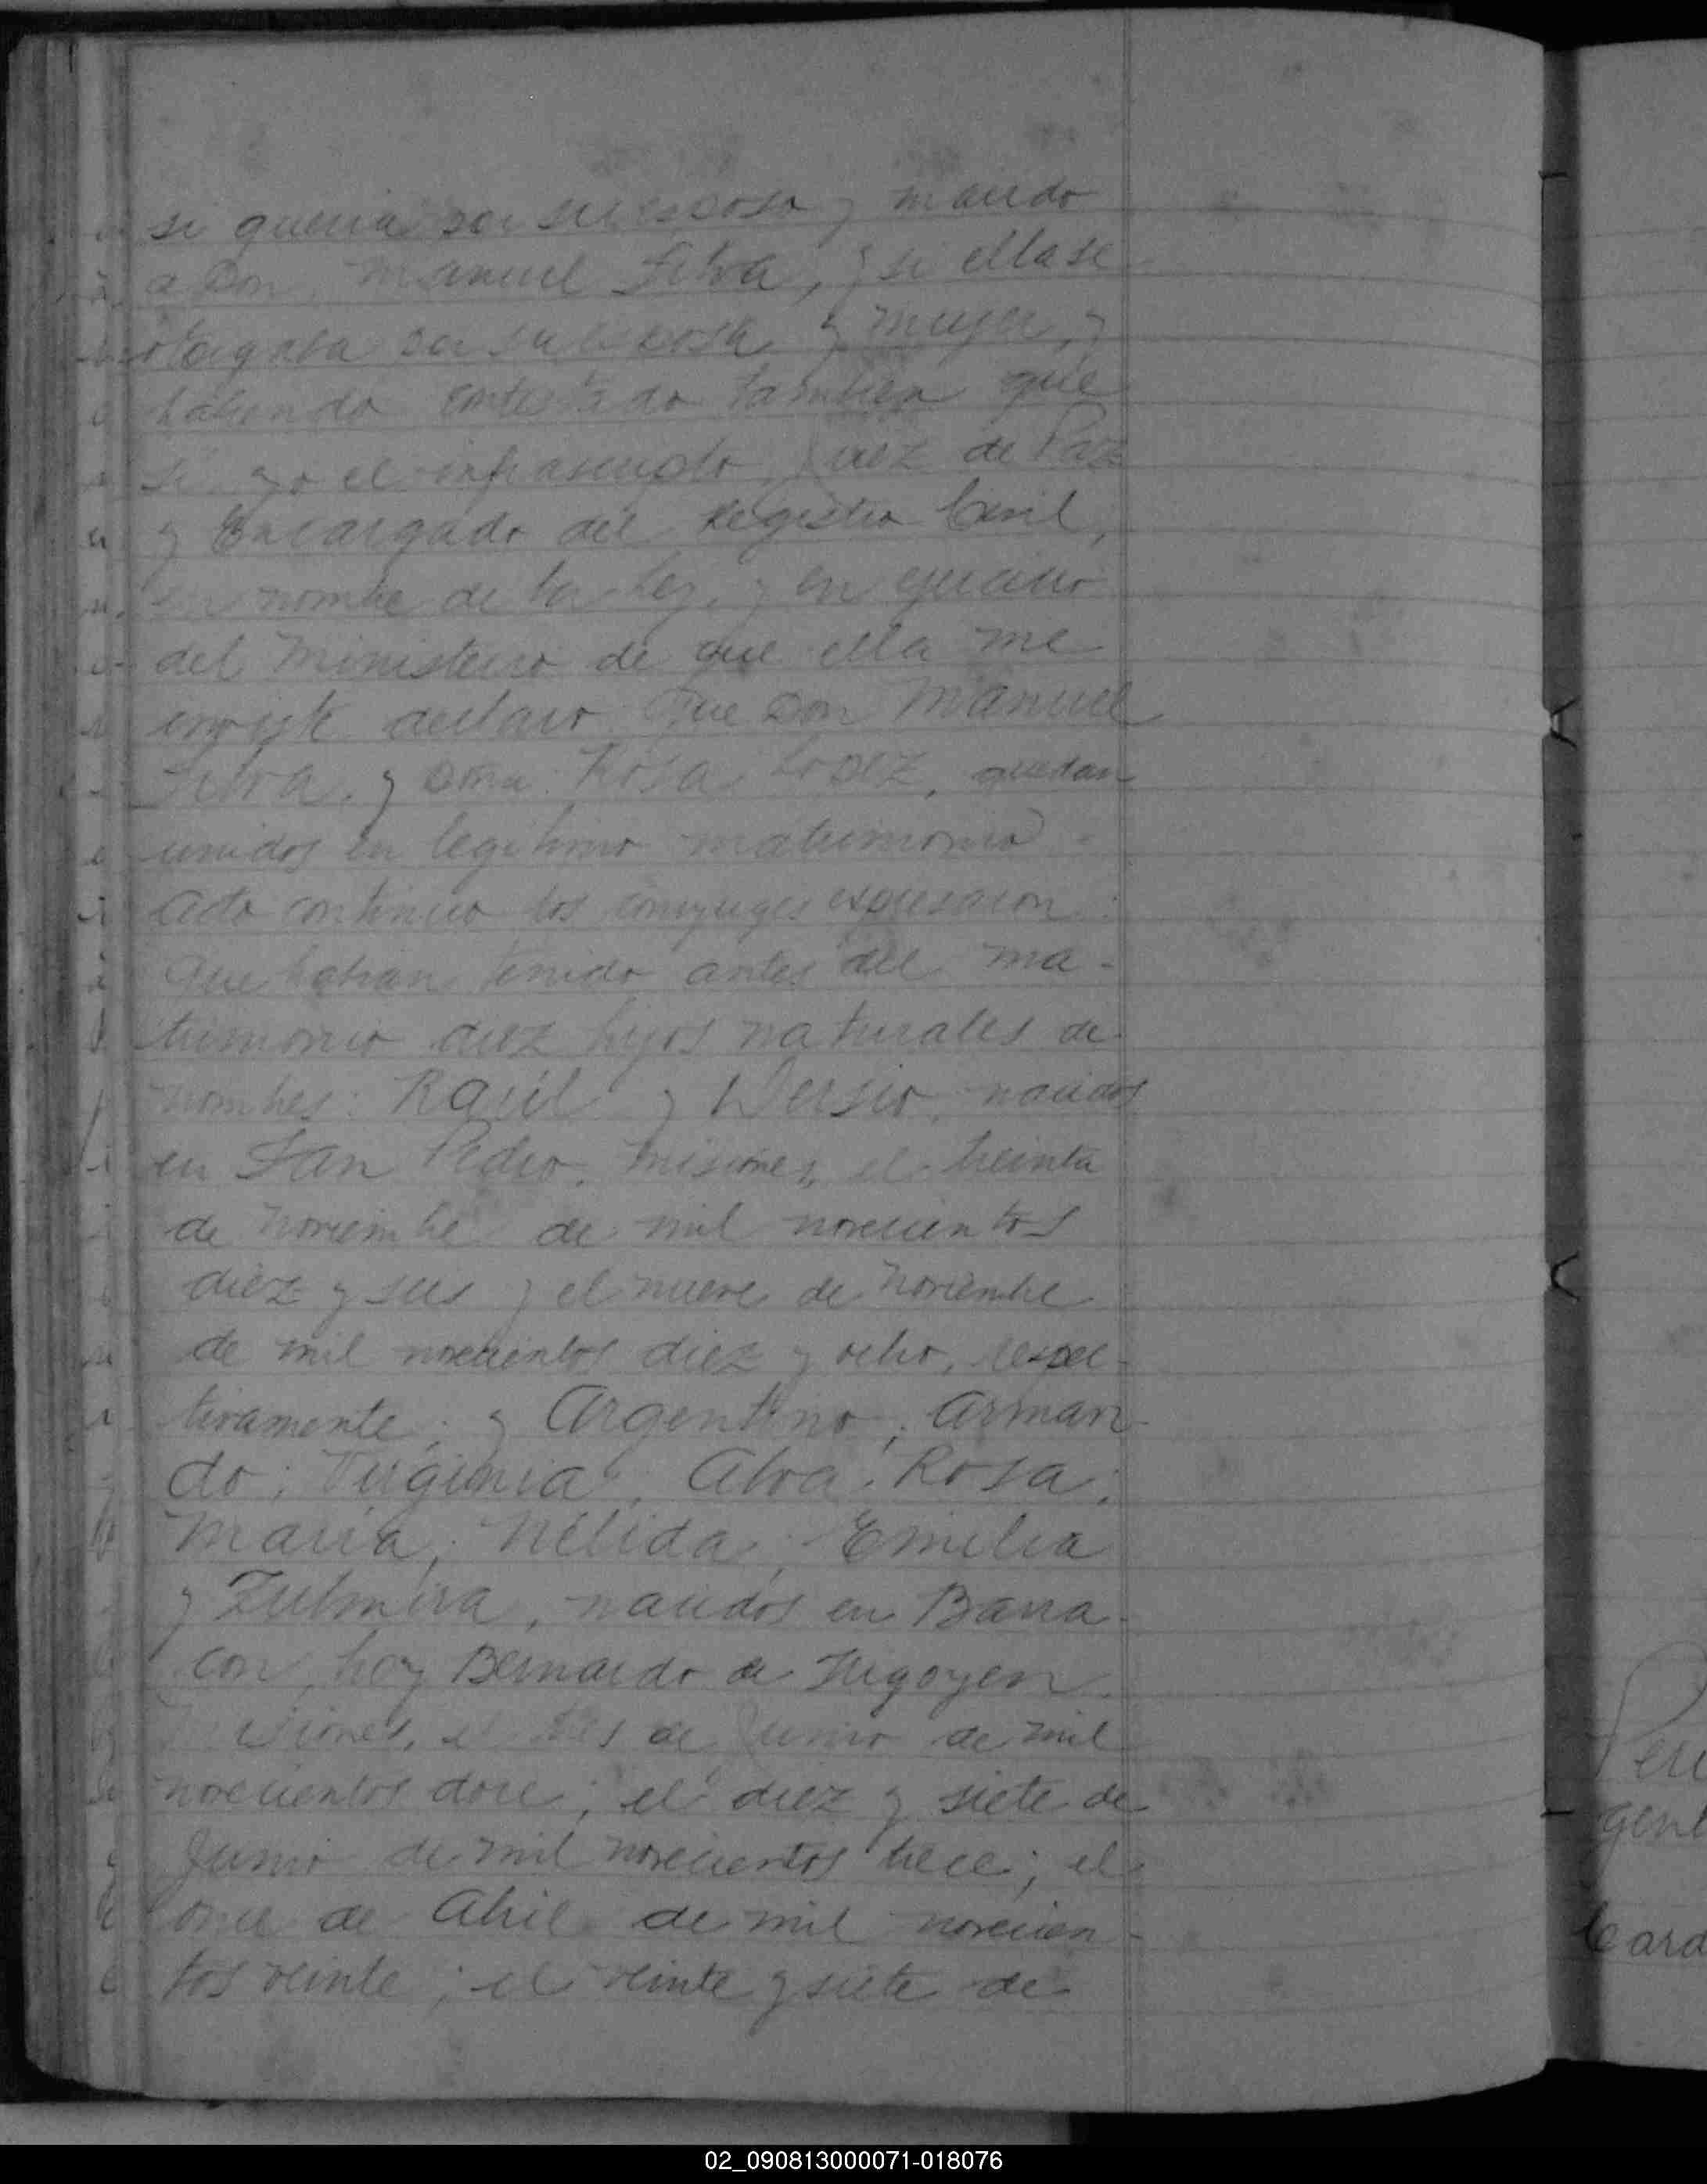 si queria por su esposo y marido
a Don Manuel Silva, y si ella se
otorgaba por su esposa y mujer, y
habiendo contestado tambien que
si yo el infrascripto Juez de Paz
y Encargado del Registro Civil,
en nombre de la Ley, y en ejercicio
del Ministerio de que ella me
inviste declaro que Don Manuel
Silva y Doña Rosa Lopez, quedan
unidos en legitimo matrimonio =
Acto continuo los conyuges expresaron:
Que habian tenido antes del ma-
trimonio diez hijos naturales de
nombres: Raúl y Dersio, nacidos
en San Pedro, Misiones, el treinta
de Noviembre de mil novecientos
diez y seis y el nueve de Noviembre
de mil novecientos diez y ocho, respec-
tivamente; y Argentino; Arman-
do; Virginia; Alva; Rosa;
Maria; Nélida; Emilia
y Zulmira, nacidos en Barra-
con, hoy Bernardo de Irigoyen
Misiones, el tres de Junio de mil
novecientos doce; el diez y siete de
Junio de mil novecientos trece; el
once de Abril de mil novecien-
tos veinte; el veinte y siete de
Peri
gent
Card
02_090813000071-018076